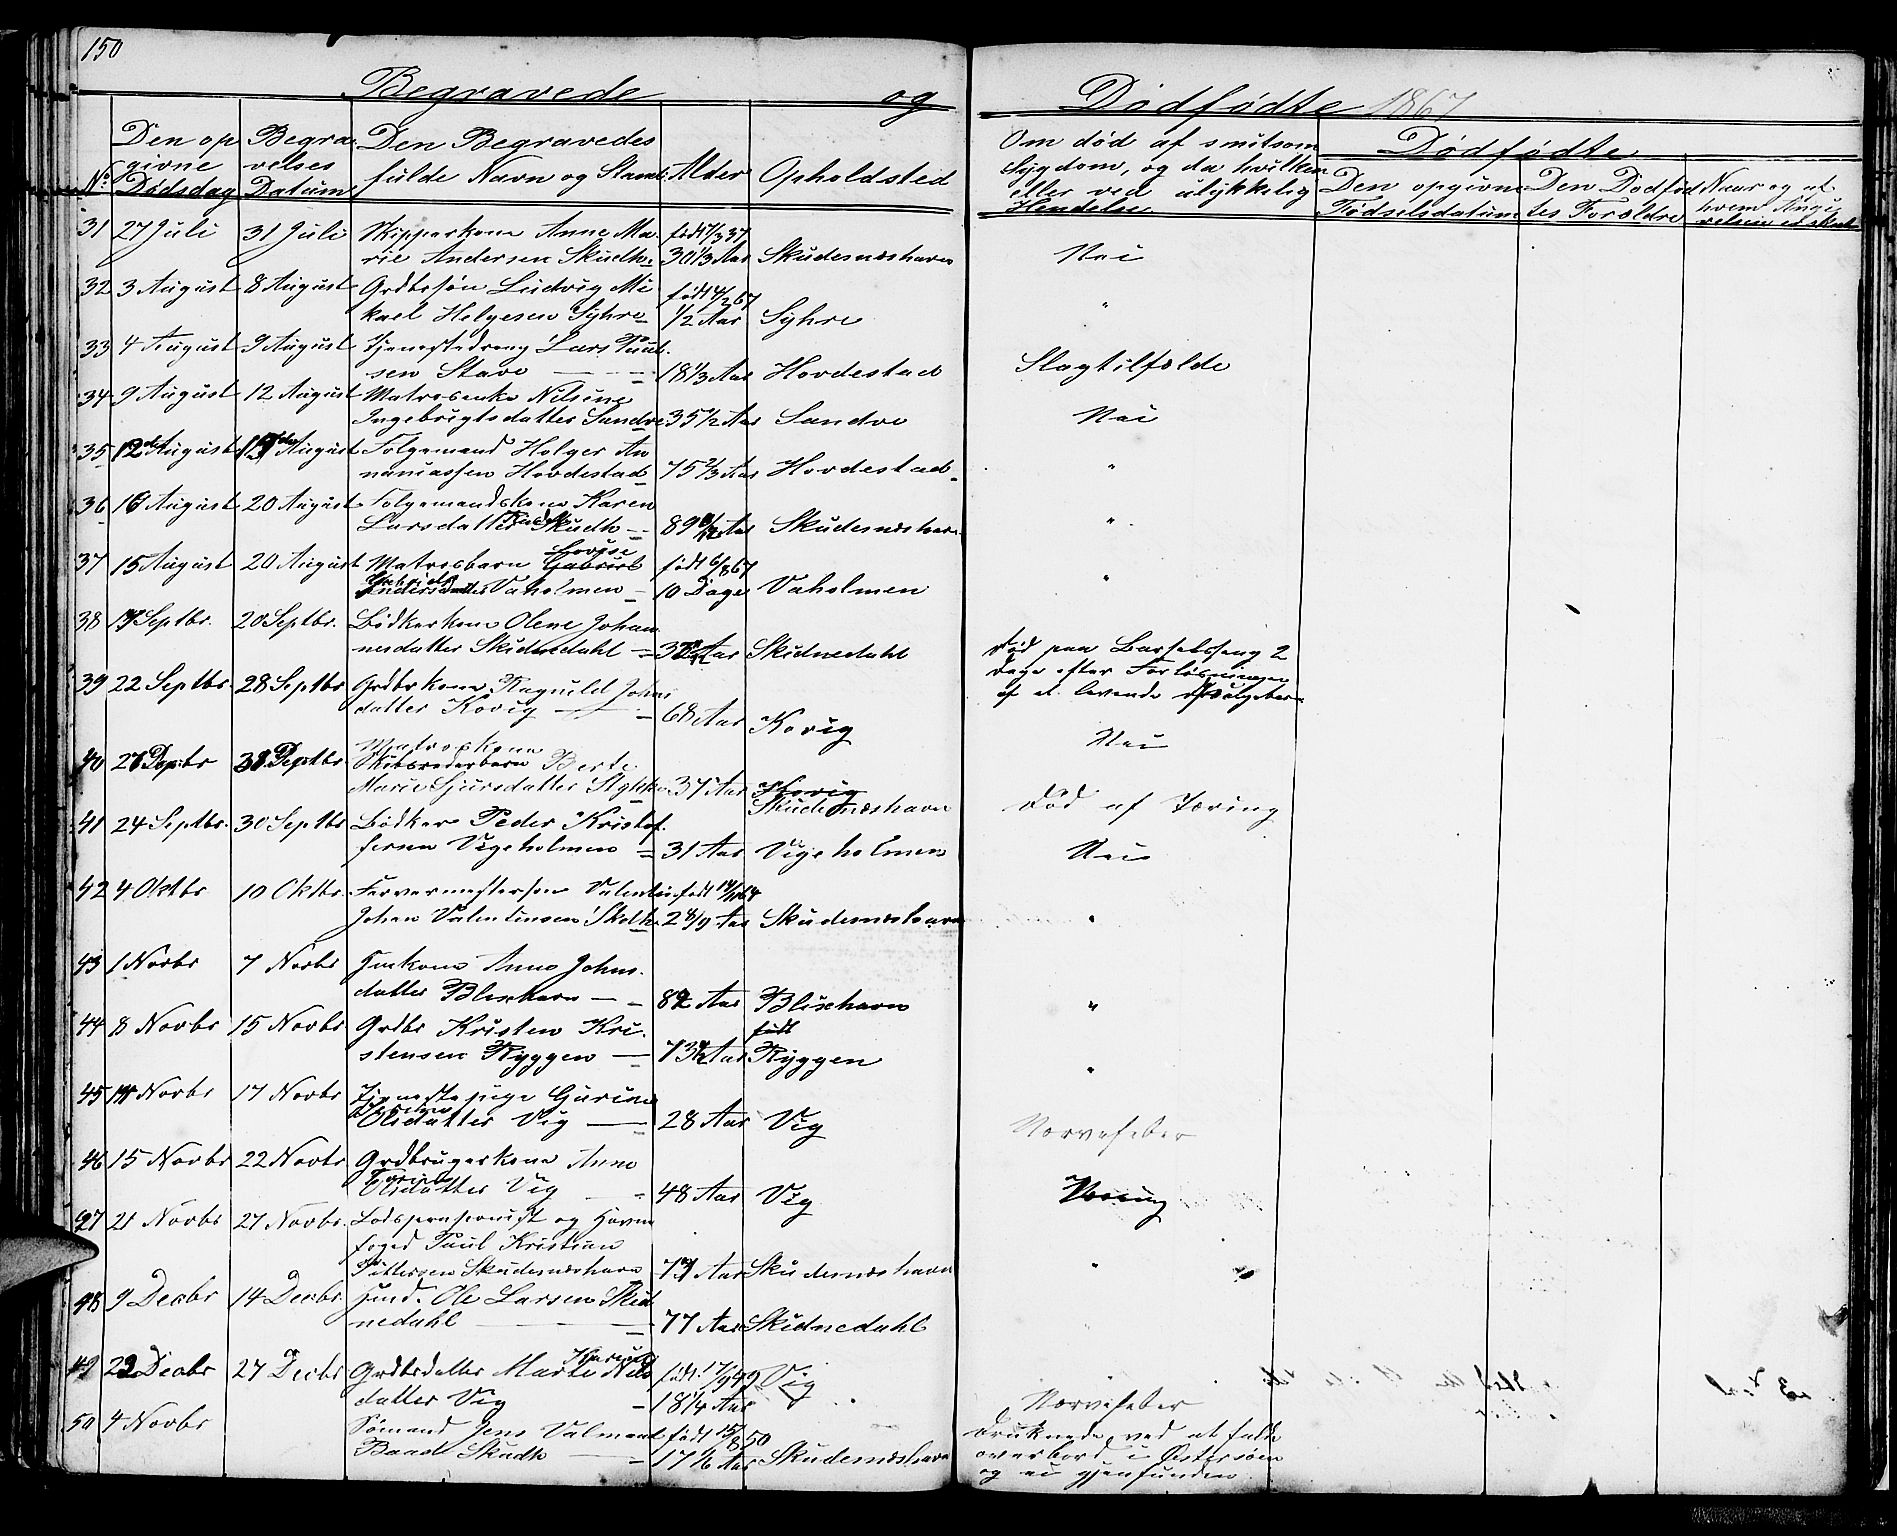 150
Begravede og Dødfødte 1867
No
Den op
givne
Dødsdag
Begra
velses
Datum
Den Begravedes
fulde Navn og Stand
Alder
Opholdsted
Om død af smitsom
Sygdom, og da hvilken
eller ved ulykkelig
Hendelse
Dødfødte
Den opgivne
Fødselsdatum
Den Dødfød
tes Foroldre
Naar og af
hvem
31 27 Juli 31 Juli Skipperkone Anne Ma-
rie Andersen Skudh. født 1/3 37 30 1/3 Aar Skudesnæshavn Nei
32 3 August 8 August Grdbrsøn Ludvig Mi
kael Helgesen Syhre født 4/2 67 1/2 Aar Syhre "
33 4 August 9 August Tjenestedreng Lars Paul
sen Stave 18 1/3 Aar Hovdestad Slagtilfælde
34 9 August 12 August Matroesenke Nilsine
Ingebrigtsdatter Sandve 35 1/2 Aar Sandve Nei
35 12 August August Folgemand Holger An
naniassen Hovdestad 75 2/3 Aar Hovdestad "
36 16 August 20 August Folgemandskone Karen
Larsdatter Skudh 89 Aar Skudesnæshavn "
37 15 August 20 August Matrosbarn Lovise Gabriel
Andersdatter Vaholmen født 6/8 67 10 Dage Vaholmen "
38 Septbr. 20 Septbr. Bødkerkone Olene Johan
nesdatter Skidnedahl Aar Skidnedahl Død paa Barselsseng 2
Dage efter Forløsningen
af et levende
39 22 Septbr 28 Septbr Grdbrkone Ragnild Johns
datter Kovig 68 Aar Kovig Nei
40 Septbr Septbr. Matroskone
Berte
Marie Sjursdatter 37 Aar Kovig
Skudesnæshavn Død af Tæring
41 24 Septbr. 30 Septbr Bødker Peder Kristof
fersen Vigeholmen 31 Aar Vigeholmen Nei
42 4 Oktbr 10 Oktbr. Farvermestersøn Valentin
Johan Valentinsen Skdh. født 2 8/9 Aar Skudesnæshavn "
43 1 Novbr 7 Novbr Anne Johns-
datter Blixhavn 82 Aar Blixhavn "
44 8 Novbr 15 Novbr Grdbr Kristen Kri-
stensen Ryggen 73 Aar født
Ryggen "
45 Novbr 17 Novbr Tjenestepige Gurine
Olsdatter Vig 28 Aar Vig Nervefeber
46 15 Novbr 22 Novbr Grdbrugerkone Anne
Olsdatter Vig 48 Aar Vig
47 21 Novbr 27 Novbr. Lodspensionist og Havne
foged Paul Kristian
Pettersen Skudesnæshavn Aar Skudesnæshavn "
48 9 Decbr 14 Decbr Ole Larsen Skid
nedahl 77 Aar Skidnedahl
49 Decbr 27 Decbr Grdbrdatter Marte Nils
datter Vig født 17/9 49 18 1/4 Aar Vig Nervefeber
50 4 Novbr Sømand Jens Valmand
Baad Skudh født 15/8 50 17 1/6 Aar Skudesnæshavn Druknede ved at falde
overbord i Østersøen
og ei gjenfunden.